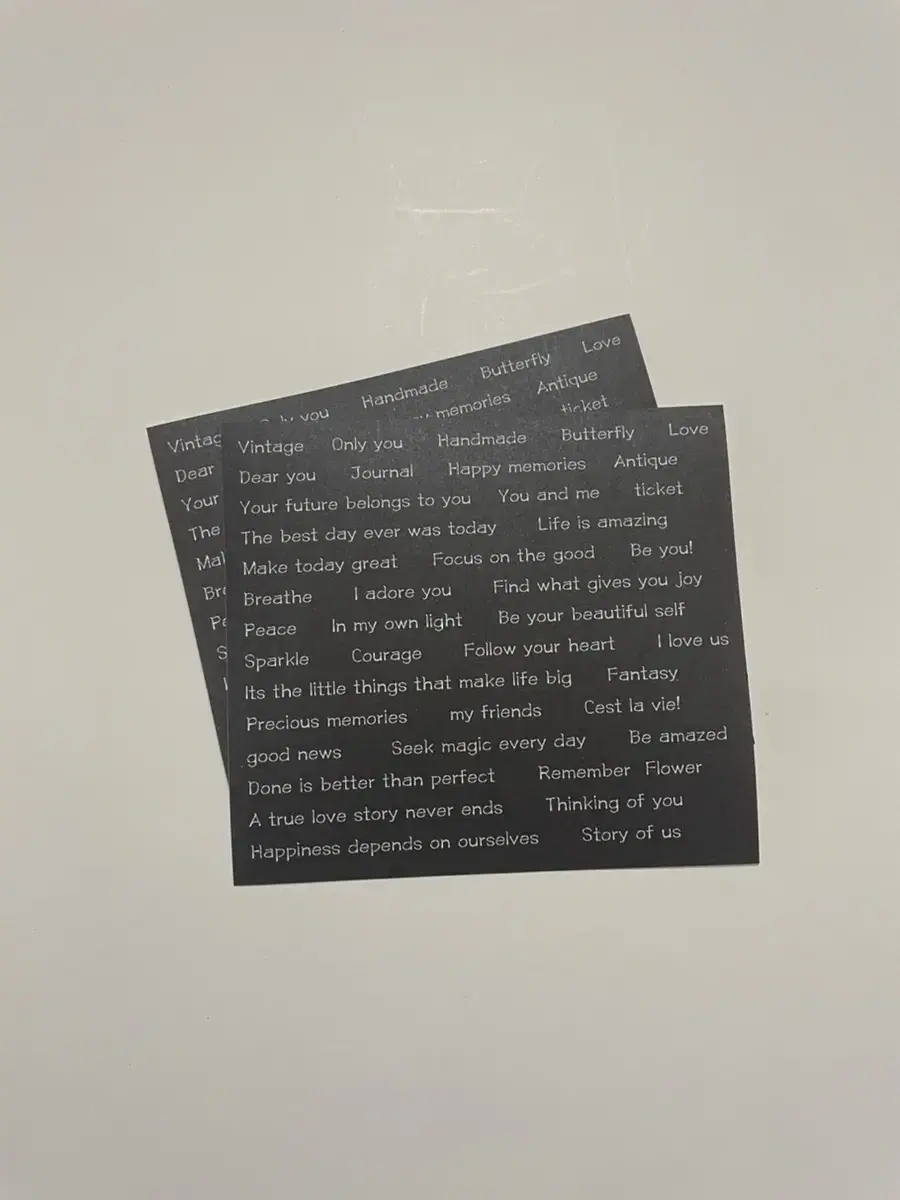 Love
Butterfly
Handmade
you
Antique
memories
ticket
Dear
Your
The
Vintage Only you Handmade Butterfly Love
Dear you Journal Happy memories Antique
Your future belongs to you You and me ticket
The best day ever was today Life is amazing
Make today great Focus on the good Be you!
Breathe I adore you Find what gives you joy
Peace In my own light Be your beautiful self
Sparkle Courage Follow your heart I love us
Its the little things that make life big Fantasy
Precious memories my friends Cest la vie!
good news Seek magic every day Be amazed
Done is better than perfect Remember Flower
A true love story never ends Thinking of you
Happiness depends on ourselves Story of us